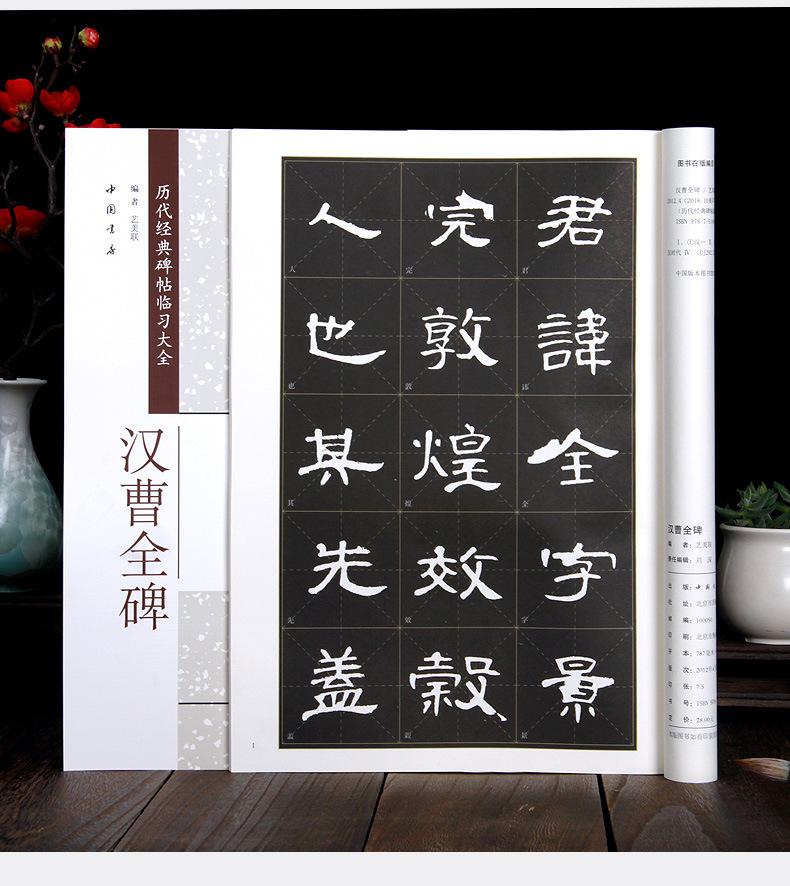 历代经典碑帖临习大全
编者 艺美联
中国书店
汉曹全碑
君諱全字景
完敦煌效穀
人也其先蓋
1
图书在版编目
汉曹全碑 / 艺美
2012.4（2018.10重
（历代经典碑帖
ISBN 978-7-5
1. ①汉… Ⅱ.
国时代 Ⅳ. ①J292.
中国版本图书馆
汉曹全碑
编 者：艺美联
责任编辑：刘 深
出 版：中国
社 址：北京市
邮 编：10005
印 刷：北京市
开 本：787毫米
版 次：2012年4
印 张：7.5
书 号：ISBN 978
定 价：28.00元
本版图书如有印装质